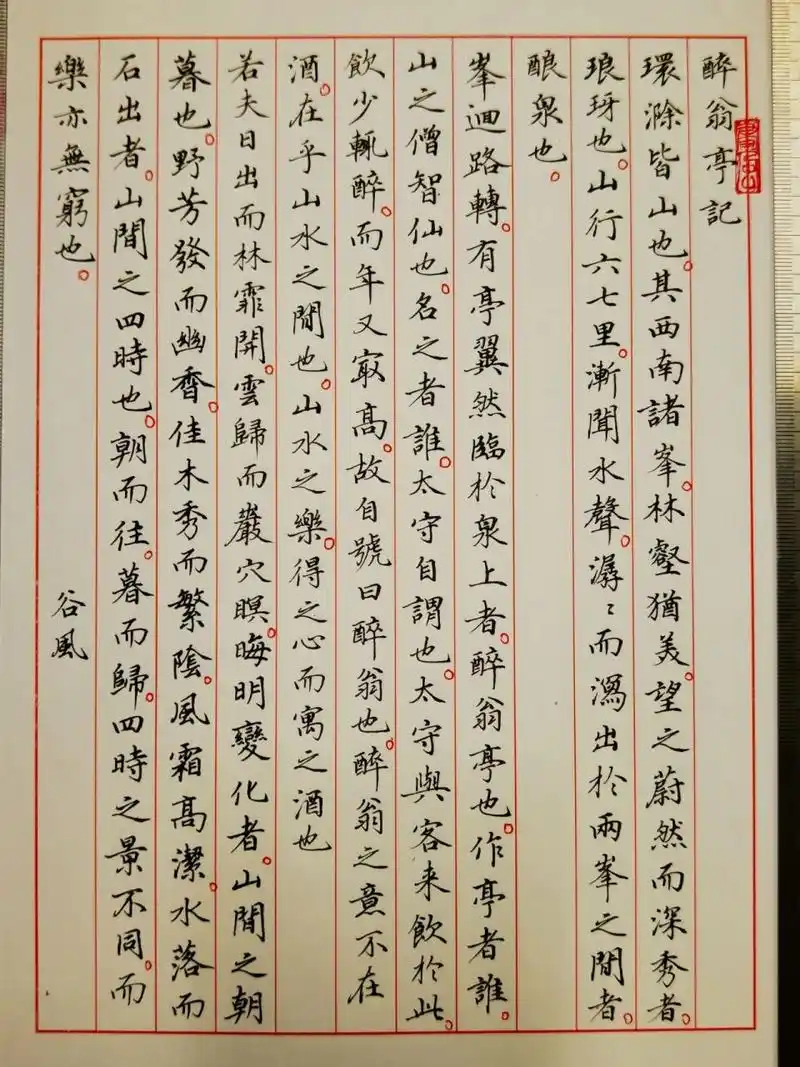 醉翁亭記
環滁皆山也。其西南諸峯。林壑猶美。望之蔚然而深秀者。
琅玡也。山行六七里。漸聞水聲。潺〻而瀉出於兩峯之間者。
酿泉也。
峯迴路轉。有亭翼然臨於泉上者。醉翁亭也。作亭者誰。
山之僧智仙也。名之者誰。太守自謂也。太守與客来飲於此。
飲少輒醉。而年又寂高。故自號曰醉翁也。醉翁之意不在
酒。在乎山水之間也。山水之樂。得之心而寓之酒也
若夫日出而林霏開。雲歸而巖穴暝。晦明變化者。山間之朝
暮也。野芳發而幽香。佳木秀而繁陰。風霜高潔。水落而
石出者。山間之四時也。朝而往。暮而歸。四時之景不同。而
樂亦無窮也。
谷風